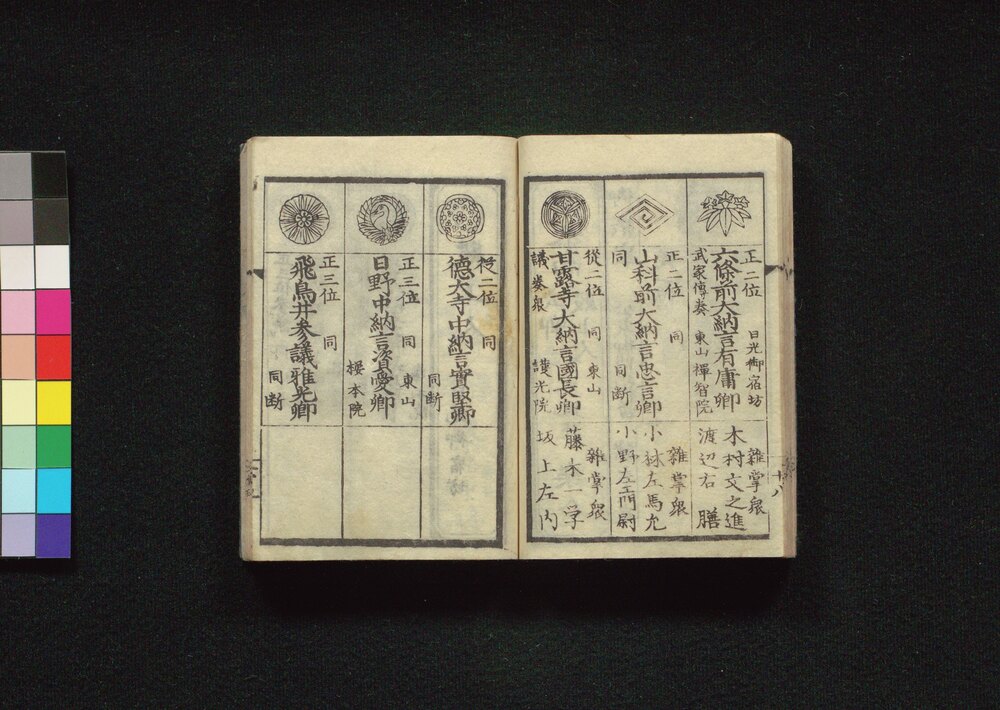 正二位　日光御宿坊
六條前大納言有庸卿
武家傳奏　東山禪智院
雜掌衆
木村文之進
渡辺右膳
正二位　同
山科前大納言忠言卿
同　同断
雜掌衆
小林左馬允
小野左エ門尉
從二位　同　東山
甘露寺大納言國長卿
議奏衆　護光院
雜掌衆
藤木一学
坂上左内
十八
從二位　同
德大寺中納言實堅卿
同断
正三位　同　東山
日野中納言資愛卿
櫻本院
正三位　同
飛鳥井参議雅光卿
同断